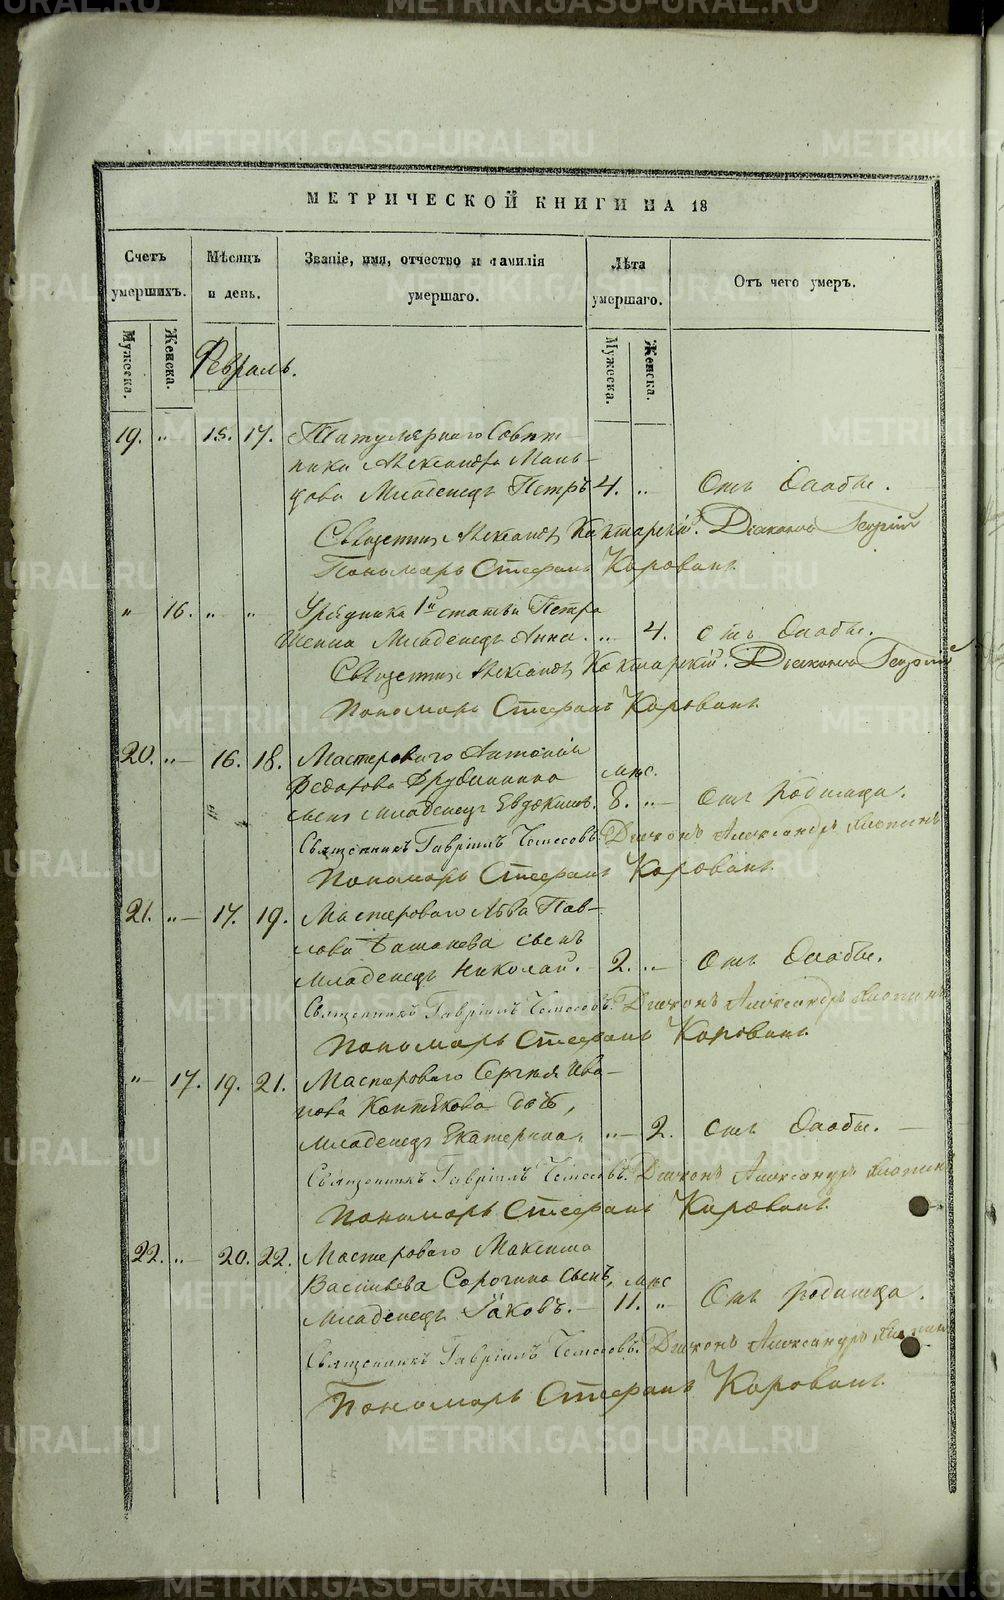 МЕТРИЧЕСКОЙ КНИГИ НА 18
Счетъ умершихъ.
Мѣсяцъ и день.
Званіе, имя, отчество и фамилія умершаго.
Лѣта умершаго.
Отъ чего умеръ.
Мужеска.
Женска.
Мужеска.
Женска.
Февраль.
19. „ 15. 17. Титулярнаго Совѣт-
ника Александра
Младенецъ Петръ 4. „ Отъ Оспы.
Священникъ Александръ Діаконъ Георгій
Пономарь Стефанъ Корованъ
„ 16. „ „ Урядника 1й статьи Петра
Младенецъ Анна. „ 4. отъ Оспы.
Священникъ Александръ Діаконъ Георгій
Пономарь Стефанъ Корованъ
20. „ 16. 18. Мастероваго
Федорова мѣс.
сынъ Младенецъ Евдокимъ. 8. „ Отъ родимца.
Священникъ Гавріилъ Діаконъ Александръ
Пономарь Стефанъ Корованъ.
21. „ 17. 19. Мастероваго Льва Пав-
лова сынъ
Младенецъ Николай. 2. „ Отъ Оспы.
Священникъ Гавріилъ Діаконъ Александръ
Пономарь Стефанъ Корованъ.
„ 17. 19. 21. Мастероваго Сергия Ива-
нова дочь,
Младенецъ Екатерина. „ 2. Отъ Оспы.
Священникъ Гавріилъ Діаконъ Александръ
Пономарь Стефанъ Корованъ.
22. „ 20. 22. Мастероваго Максима
Васильева Сорогина сынъ, мѣс
Младенецъ Іаковъ. 11. „ Отъ родимца.
Священникъ Гавріилъ Діаконъ Александръ
Пономарь Стефанъ Корованъ.
METRIKI.GASO-URAL.RU